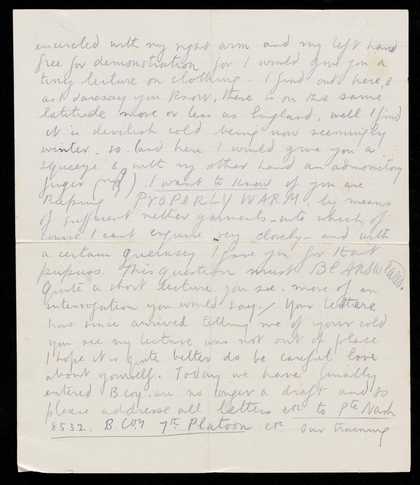 encircled with my right arm and my left hand
free for demonstration for I would give you a
tiny lecture on clothing. I find out here, &
as I daresay you know, there is on the same
latitude more or less as England, well I find
it is devilish cold being now seemingly
winter. so and here I would give you a
squeeze & with my other hand an admonitory
finger I want to know if you are
keeping PROPERLY WARM by means
of sufficient nether garments - into which of
course I cant enquire very closely - and with
a certain guernsey I gave you for that
purpose. This question must BE ANSWERED
Quite a short lecture you see. more of an
interrogation you would say. Your letter
has since arrived telling me of your cold
you see my lecture was not out of place
I hope it is quite better do be careful love
about yourself. Today we have finally
entered B coy. are no longer a draft and so
please addresse all letters etc to Pte Nash
8532. B COY 7th Platoon etc our training